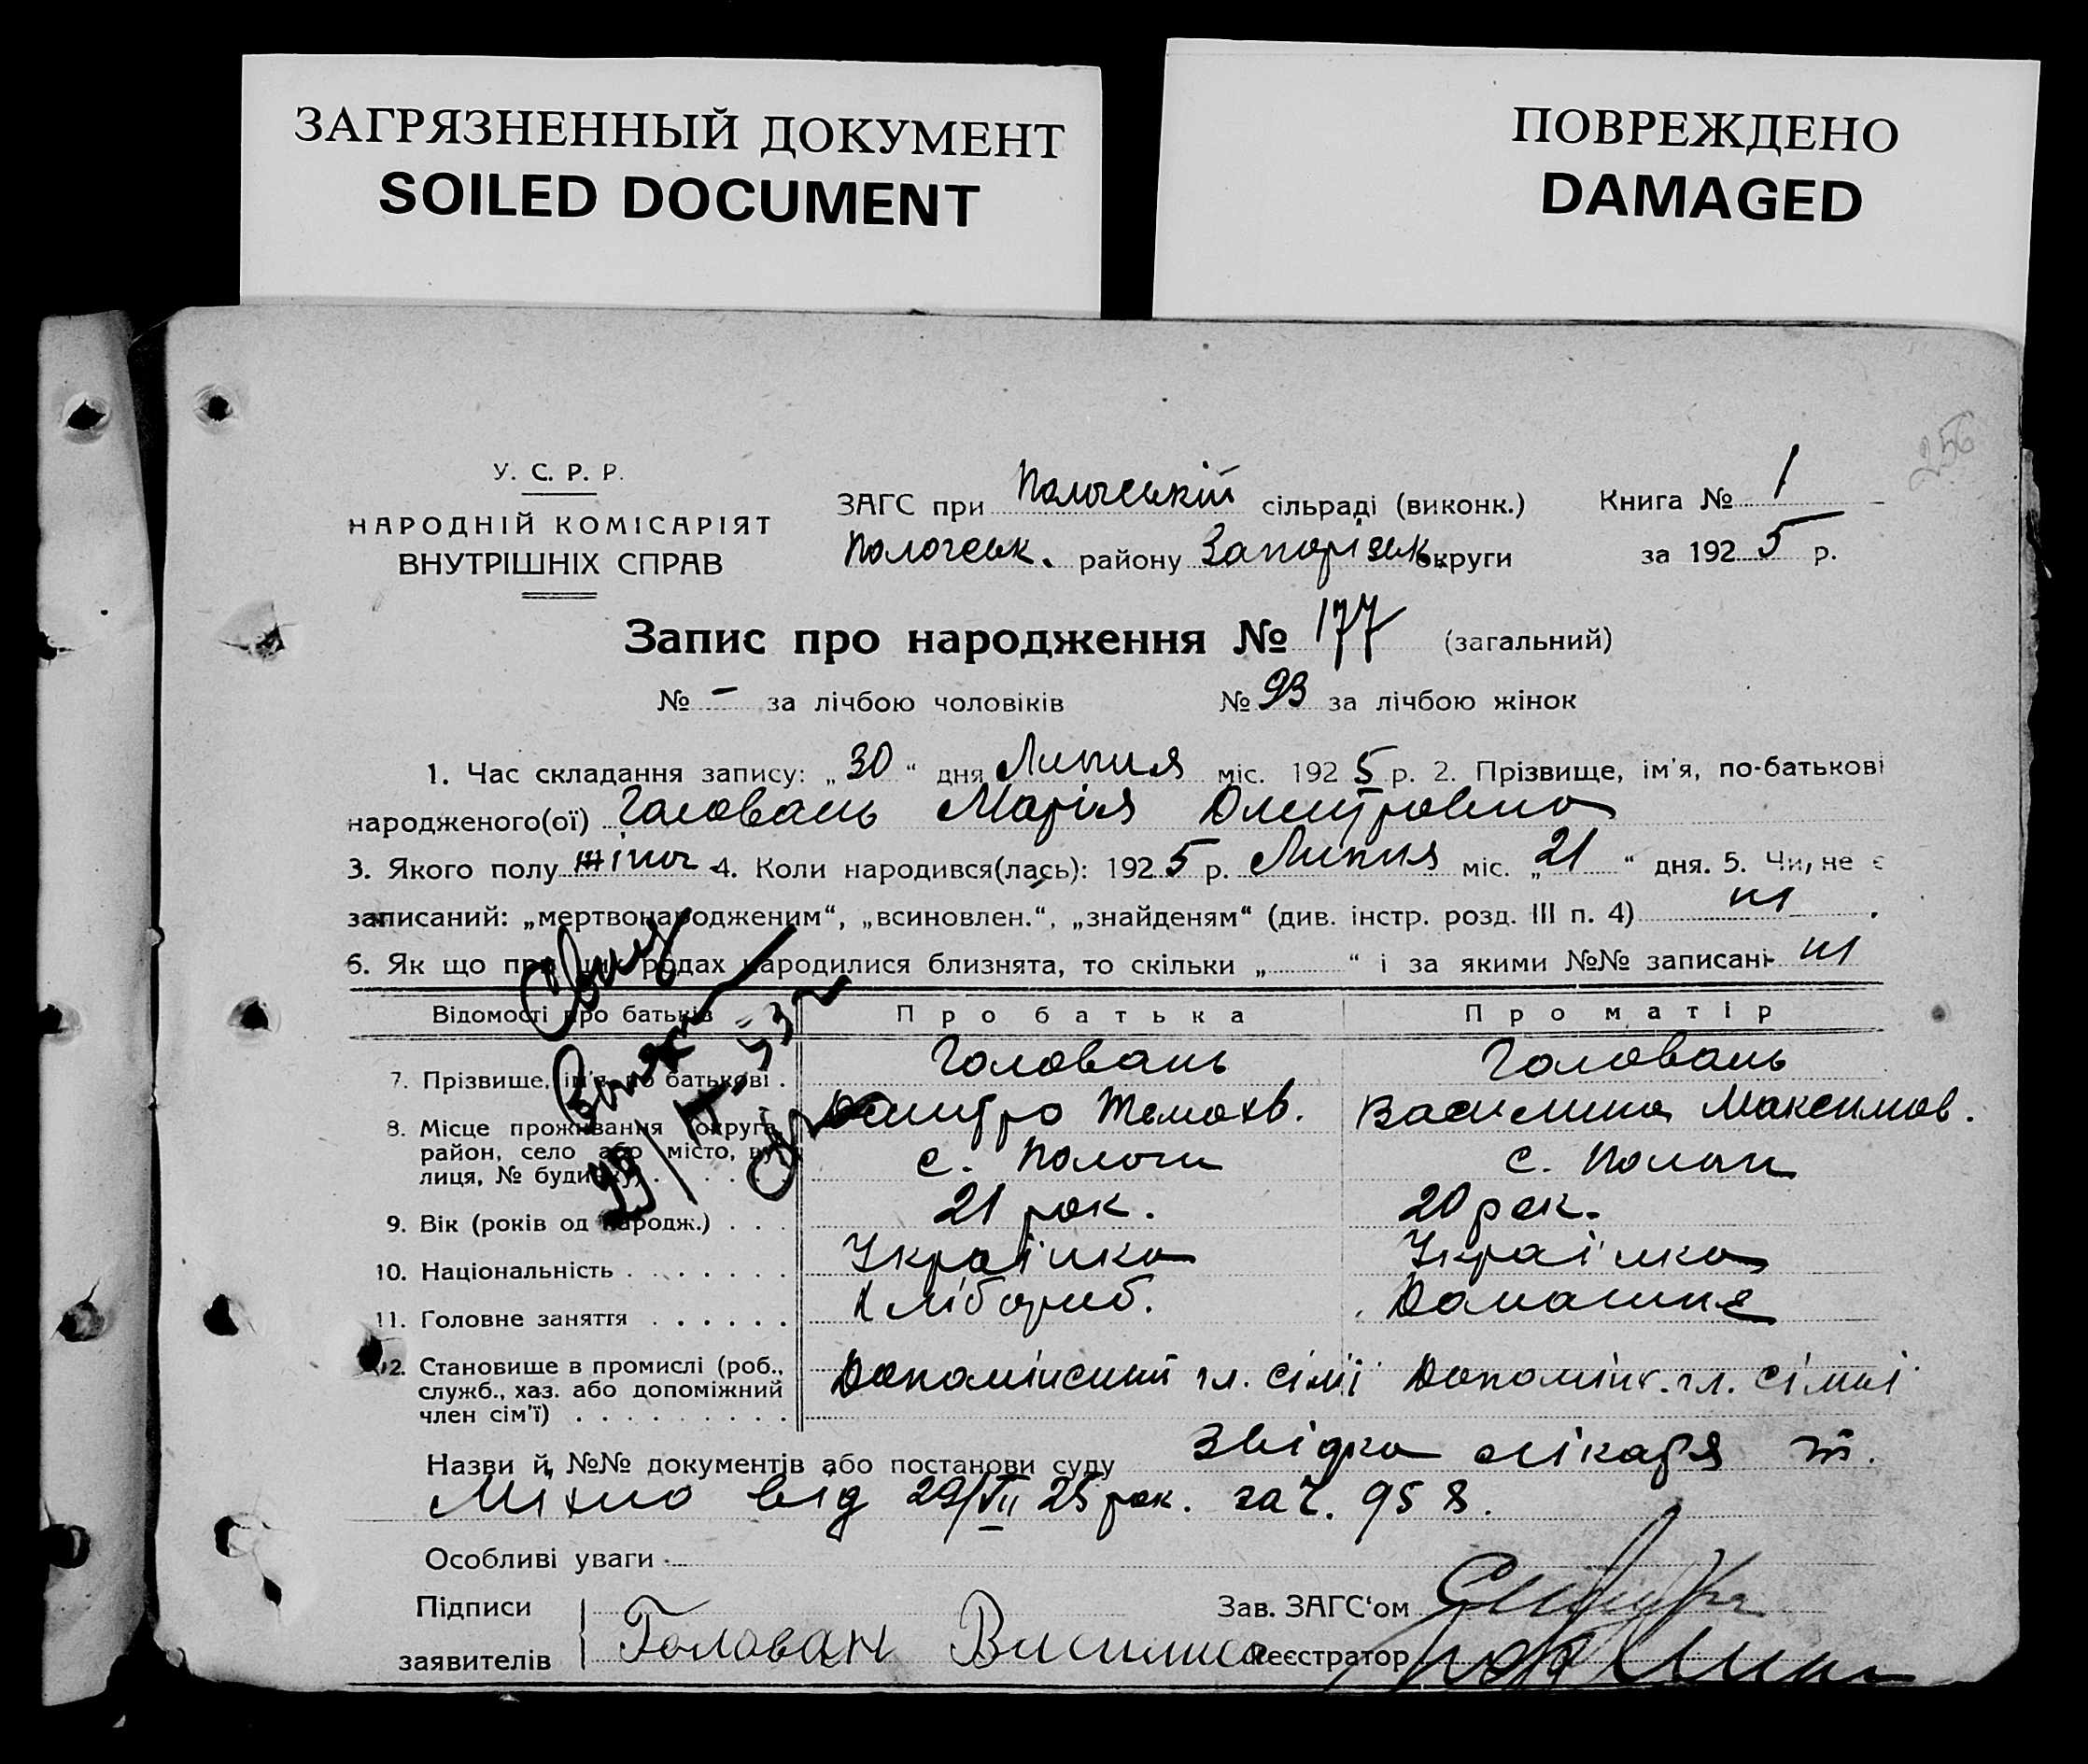 ЗАГРЯЗНЕННЫЙ ДОКУМЕНТ
SOILED DOCUMENT
ПОВРЕЖДЕНО
DAMAGED
256
У. С. Р. Р.
НАРОДНІЙ КОМІСАРІЯТ
ВНУТРІШНІХ СПРАВ
ЗАГС при Пологській сільраді (виконк.) Книга № 1
Пологськ. району Запорізьк. округи за 1925 р.
Запис про народження № 177 (загальний)
№ - за лічбою чоловіків № 93 за лічбою жінок
1. Час складання запису: „30“ дня Липня міс. 1925 р. 2. Прізвище, ім'я, по-батькові
народженого(ої) Головань Марія Дмитровна
3. Якого полу жіноч. 4. Коли народився(лась): 1925 р. Липня міс. „21“ дня. 5. Чи, не є
записаний: „мертвонародженим“, „всиновлен.“, „знайденям“ (див. інстр. розд. III п. 4) ні.
6. Як що при цих родах народилися близнята, то скільки „ “ і за якими №№ записані ні
Відомості про батьків Про батька Про матір
7. Прізвище, ім'я, по батькові . Головань Головань
Дмитро Тимохв. Василина Максимов.
8. Місце проживання (округа,
район, село або місто, ву-
лиця, № будинку) . . . . с. Пологи с. Пологи
9. Вік (років од народж.) . . . 21 рок. 20 рок.
10. Національність . . . . . . . Українка Українка
11. Головне заняття . . . . . . Хлібороб. Домашнє
12. Становище в промислі (роб.,
служб., хаз. або допоміжний
член сім'ї) . . . . . . . . . Допомінсний гл. сімї Допомінс. гл. сімні
Назви й №№ документів або постанови суду Звідка лікаря т.
Міхно від 29/VII 25 рок. за ч. 958.
Особливі уваги
Підписи
заявителів Голован Василина
Зав. ЗАГС‘ом
Реєстратор